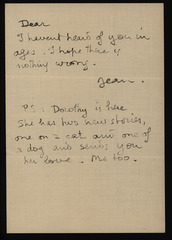 Dear
I havent heard of you in
ages. I hope there is
nothing wrong.
Jean.
P.S. Dorothy is here
She has two new stories,
one on a cat and one of
a dog and sends you
her love. Me too.